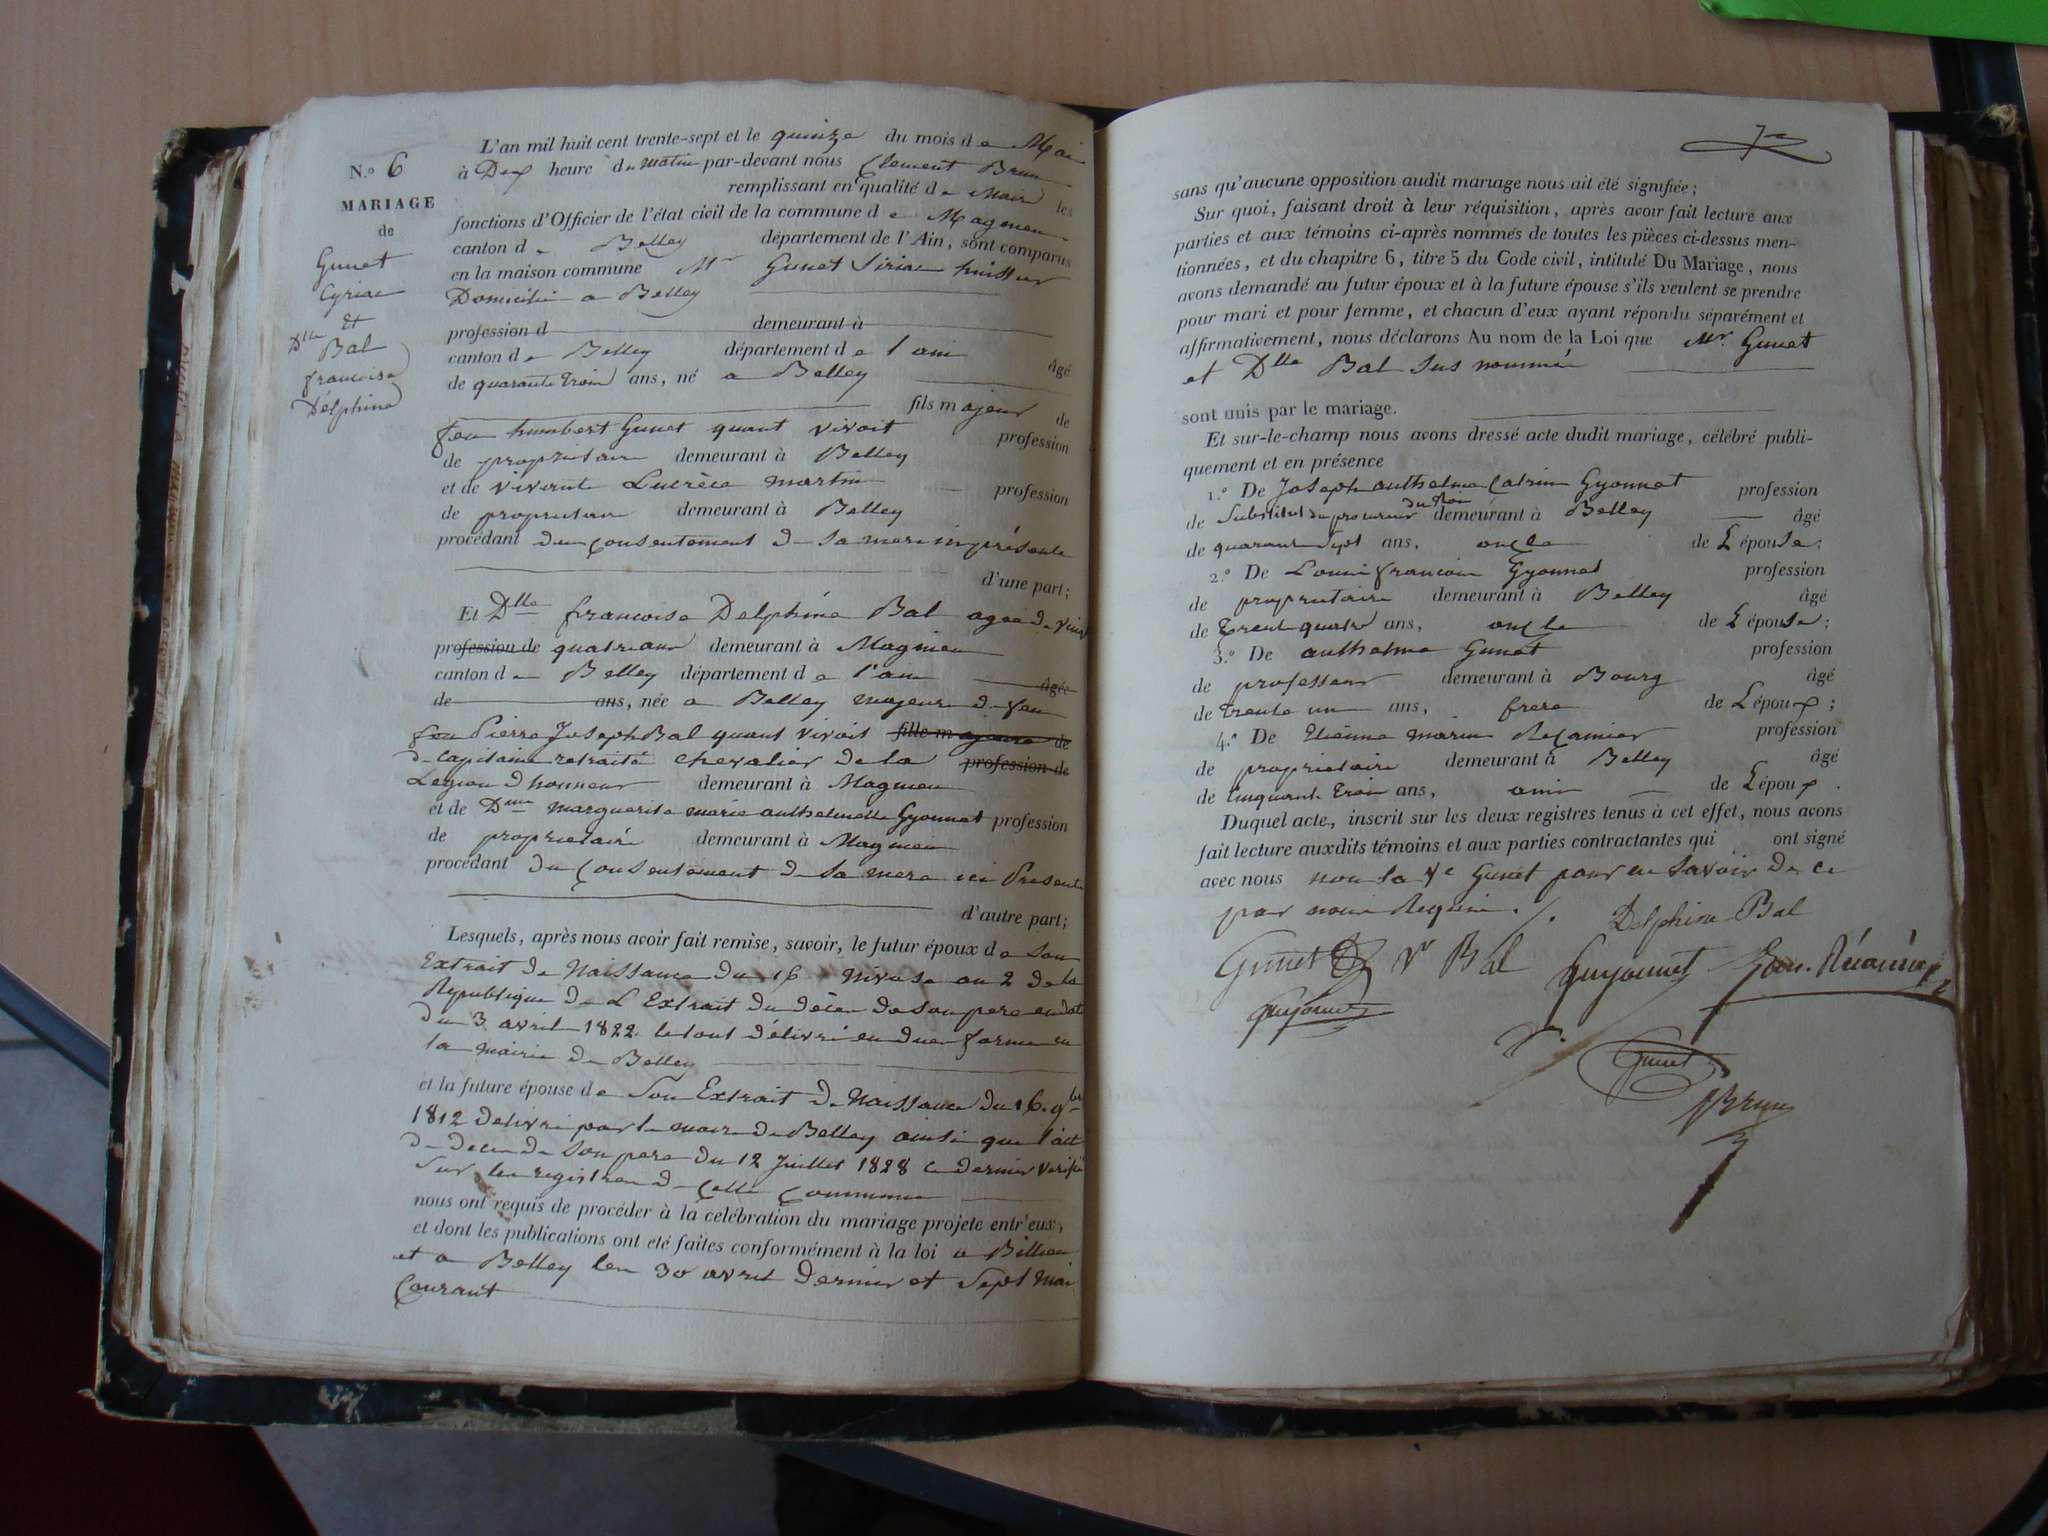 N.° 6
MARIAGE
de
Gunet
Cyriac
Et
Dlle
Bal
francoise
Délphine
L'an mil huit cent trente-sept et le quinze du mois de Mai
à Dix heure du matin par-devant nous Clement Brun
remplissant en qualité de Maire les
fonctions d'Officier de l'état civil de la commune de Magnieu
canton de Belley département de l'Ain, sont comparus
en la maison commune Mr Gunet Siriac huissier
Domicilié a Belley
profession d demeurant à
canton de Belley département de l'ain
âgé
de quarante trois ans, né a Belley
fils majeur de
feu humbert Gunet quant vivoit profession
de propriétaire demeurant à Belley
et de vivante Lucrèce martin profession
de propriétaire demeurant à Belley
procédant du Consentement de sa mere ici présente
d'une part;
Et Dlle francoise Delphine Bal agée de vint
profession de quatre ans demeurant à Magnieu
canton de Belley département de l'ain
âgée
de ans, née a Belley majeure de feu
feu Pierre Joseph Bal quant vivoit fille majeure de
de Capitaine retraité chevalier de la profession de
Legion d'honneur demeurant à Magnieu
et de Dme marguerite marie anthelmette Gyonnet profession
de propriétaire demeurant à Magnieu
procédant du Consentement de sa mere ici Presente
d'autre part;
Lesquels, après nous avoir fait remise, savoir, le futur époux de son
Extrait de Naissance du 16 Nivose an 2 de la
Republique De L'Extrait du décès de son pere en date
du 3 avril 1822 le tout délivré en due forme en
la mairie de Belley
et la future épouse de son Extrait de Naissance du 16 9bre
1812 delivré par le maire de Belley ainsi que l'acte
de deces de son pere du 12 Juillet 1828 ce dernier verifié
sur les registres de cette Commune
nous ont requis de procéder à la celébration du mariage projeté entr'eux,
et dont les publications ont été faites conformément à la loi a Billieu
et a Belley les 30 avril dernier et sept Mai
Courant
7e
sans qu'aucune opposition audit mariage nous ait été signifiée;
Sur quoi, faisant droit à leur réquisition, après avoir fait lecture aux
parties et aux témoins ci-après nommés de toutes les pièces ci-dessus men-
tionnées, et du chapitre 6, titre 5 du Code civil, intitulé Du Mariage, nous
avons demandé au futur époux et à la future épouse s'ils veulent se prendre
pour mari et pour femme, et chacun d'eux ayant répondu séparément et
affirmativement, nous déclarons Au nom de la Loi que Mr. Gunet
et Dlle Bal sus nommés
sont unis par le mariage.
Et sur-le-champ nous avons dressé acte dudit mariage, célébré publi-
quement et en présence
1.° De Joseph anthelme Gyonnet profession
de Substitut du procureur du Roi demeurant à Belley âgé
de quarante sept ans, oncle de L'épouse;
2.° De Louis francois Gyonnet profession
de propriétaire demeurant à Belley âgé
de trente quatre ans, oncle de L'épouse;
3.° De anthelme Gunet profession
de professeur demeurant à Bourg âgé
de trente un ans, frere de L'époux;
4.° De Etienne marie Récamier profession
de propriétaire demeurant à Belley âgé
de Cinquante trois ans, ami de L'époux.
Duquel acte, inscrit sur les deux registres tenus à cet effet, nous avons
fait lecture auxdits témoins et aux parties contractantes qui ont signé
avec nous non la Ve Gunet pour ne savoir De ce
par nous Requise ./.
Delphine Bal
Gunet Ve Bal Guyonnet Récamier
Guyonnet
Gunet
Brun